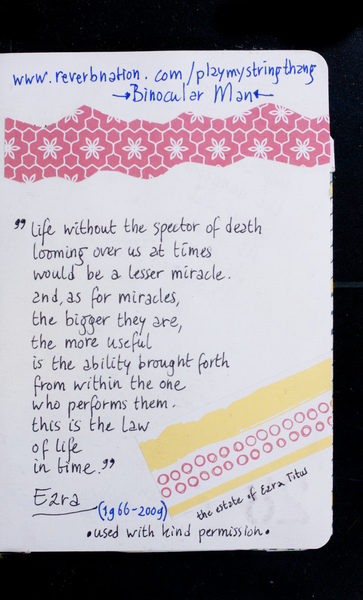 www.reverbnation.com/playmystringthang
→Binocular Man←
"life without the spector of death
looming over us at times
would be a lesser miracle.
and, as for miracles,
the bigger they are,
the more useful
is the ability brought forth
from within the one
who performs them.
this is the law
of life
in time."
Ezra
(1966-2009)
the estate of Ezra Titus
•used with kind permission.•